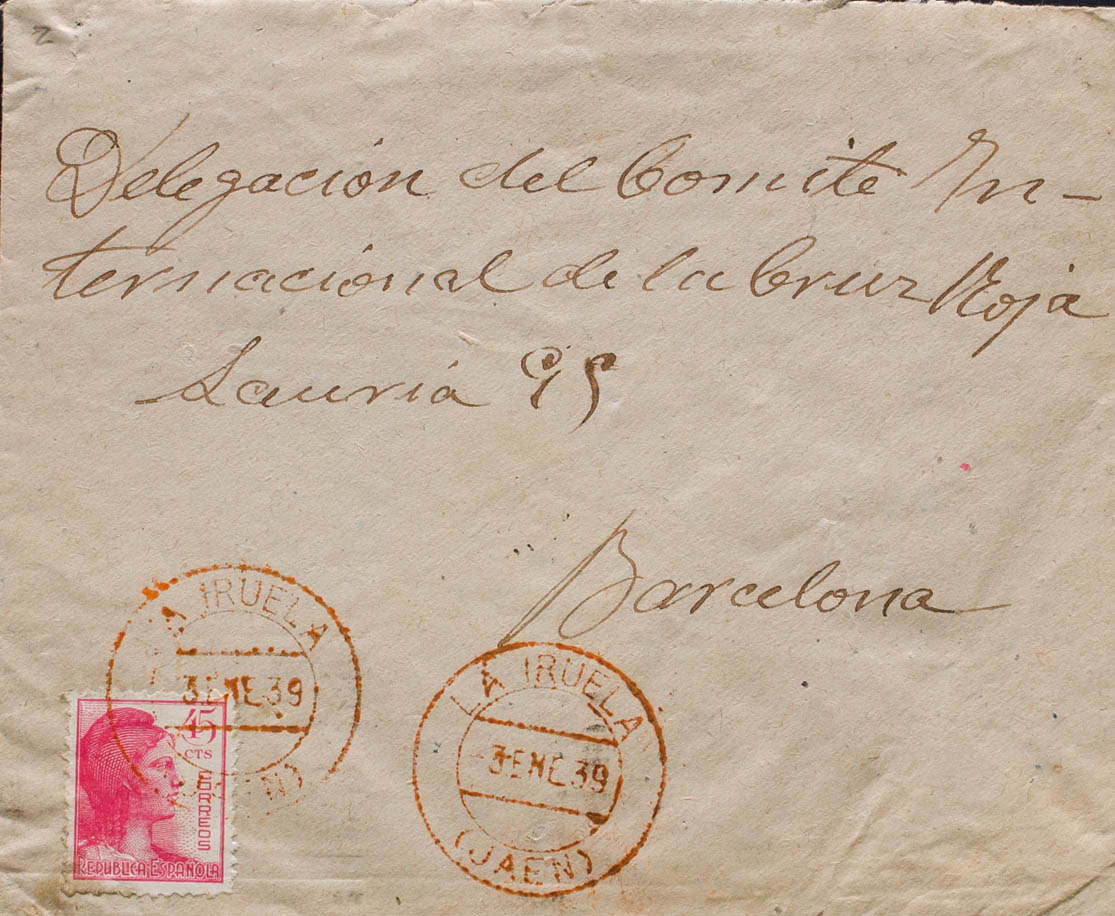 Delegación del Comité In-
ternacional de la Cruz Roja
Lauria 95
Barcelona
LA IRUELA
3 ENE.39
(JAEN)
LA IRUELA
-3 ENE.39
(JAEN)
45
CTS
CORREOS
REPUBLICA ESPAÑOLA